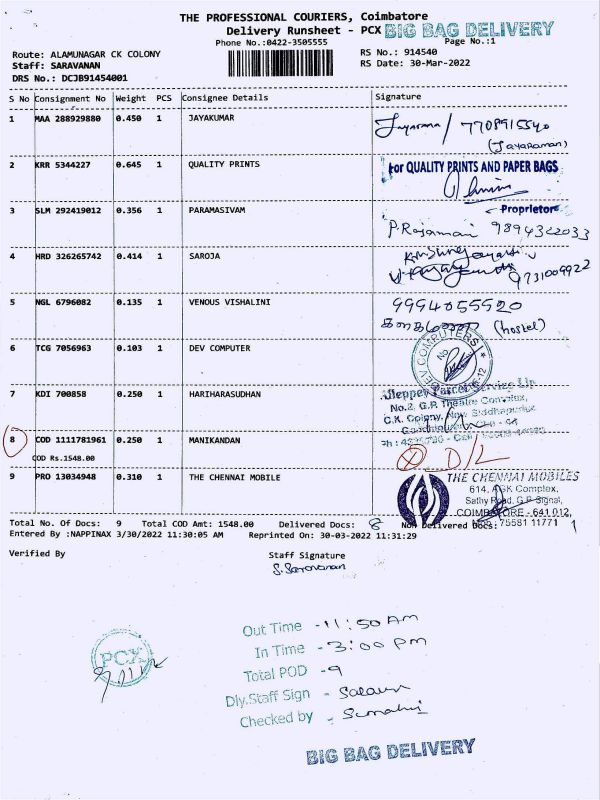 THE PROFESSIONAL COURIERS, Coimbatore
Delivery Runsheet - PCX BIG BAG DELIVERY
Phone No.:0422-3505555 Page No.:1
Route: ALAMUNAGAR CK COLONY RS No.: 914540
Staff: SARAVANAN RS Date: 30-Mar-2022
DRS No.: DCJB91454001
S No Consignment No Weight PCS Consignee Details Signature
1 MAA 288929880 0.450 1 JAYAKUMAR
7708915540
(Jayaraman)
2 KRR 5344227 0.645 1 QUALITY PRINTS For QUALITY PRINTS AND PAPER BAGS
Proprietor
3 SLM 292419012 0.356 1 PARAMASIVAM
P.Rajamani 9894322033
4 HRD 326265742 0.414 1 SAROJA
9731009922
5 NGL 6796082 0.135 1 VENOUS VISHALINI 9994055520
(hostel)
6 TCG 7056963 0.103 1 DEV COMPUTER DEV COMPUTERS
7 KDI 700858 0.250 1 HARIHARASUDHAN
No.2, G.P. Theatre Complex,
C.K. Colony, New Siddhapudur
8 COD 1111781961 0.250 1 MANIKANDAN D/L
COD Rs.1548.00
9 PRO 13034948 0.310 1 THE CHENNAI MOBILE THE CHENNAI MOBILES
614, AGK Complex,
Sathy Road, G.P. Signal,
COIMBATORE - 641 012,
MOB: 75581 11771
Total No. Of Docs: 9 Total COD Amt: 1548.00 Delivered Docs: 8 Non Delivered Docs: 1
Entered By :NAPPINAX 3/30/2022 11:30:05 AM Reprinted On: 30-03-2022 11:31:29
Verified By Staff Signature
S.Saravanan
PCX
Out Time - 11:50 Am
In Time - 3:00 pm
Total POD - 9
Dly.Staff Sign -
Checked by -
BIG BAG DELIVERY